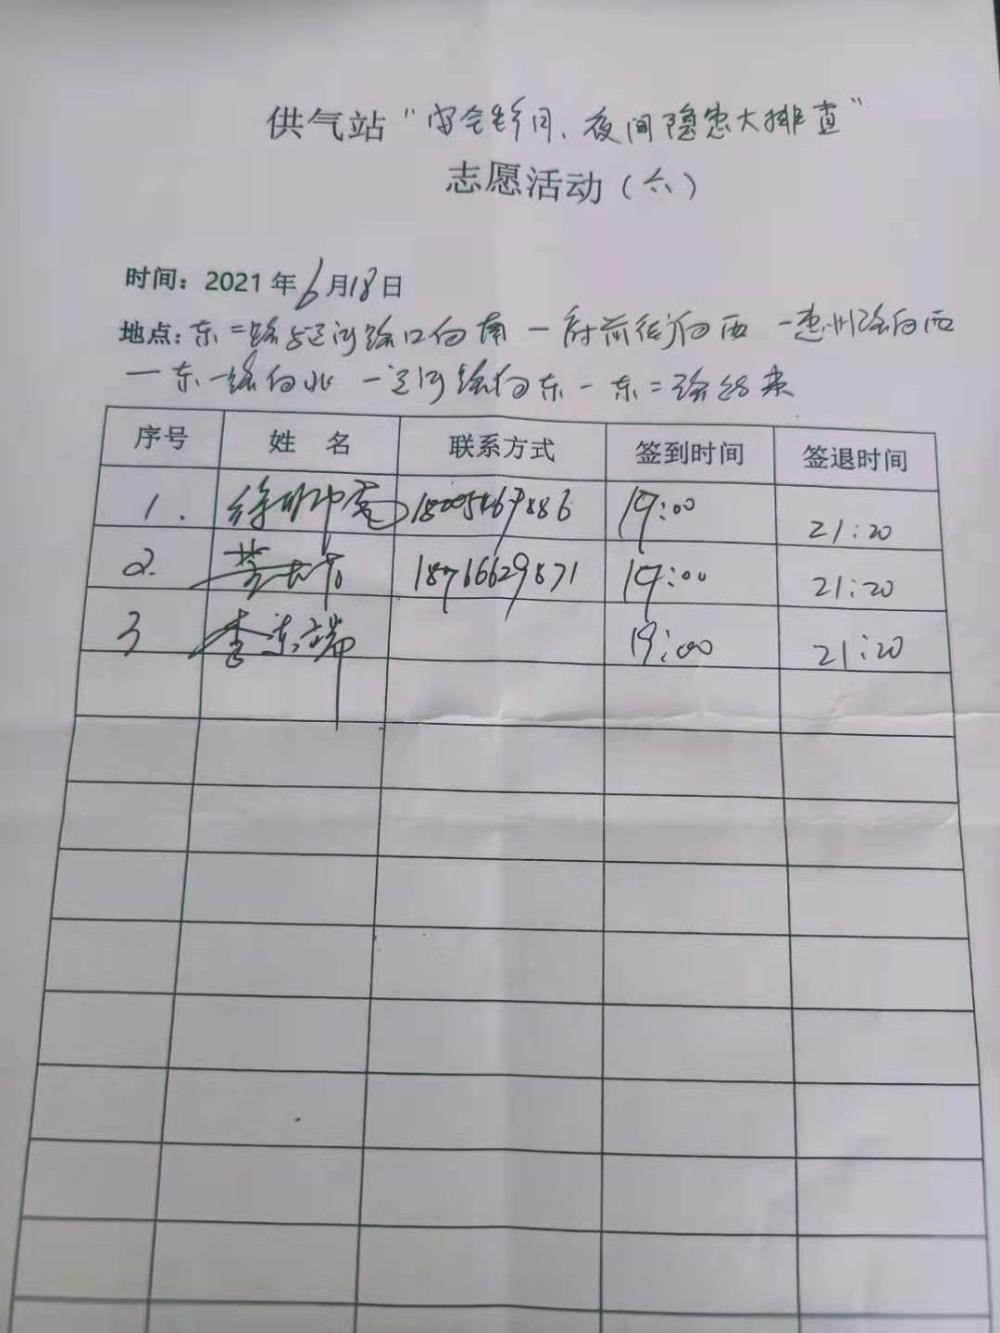 供气站"安全你我同行、夜间隐患大排查"
志愿活动（六）
时间：2021年6月18日
地点：东二路与运河路口向南—府前街向西—惠州路向西
—东一路向北—运河路向东—东二路结束
序号 姓名 联系方式 签到时间 签退时间
1. 19:00 21:20
2. 18716629871 19:00 21:20
3 李东瑞 19:00 21:20